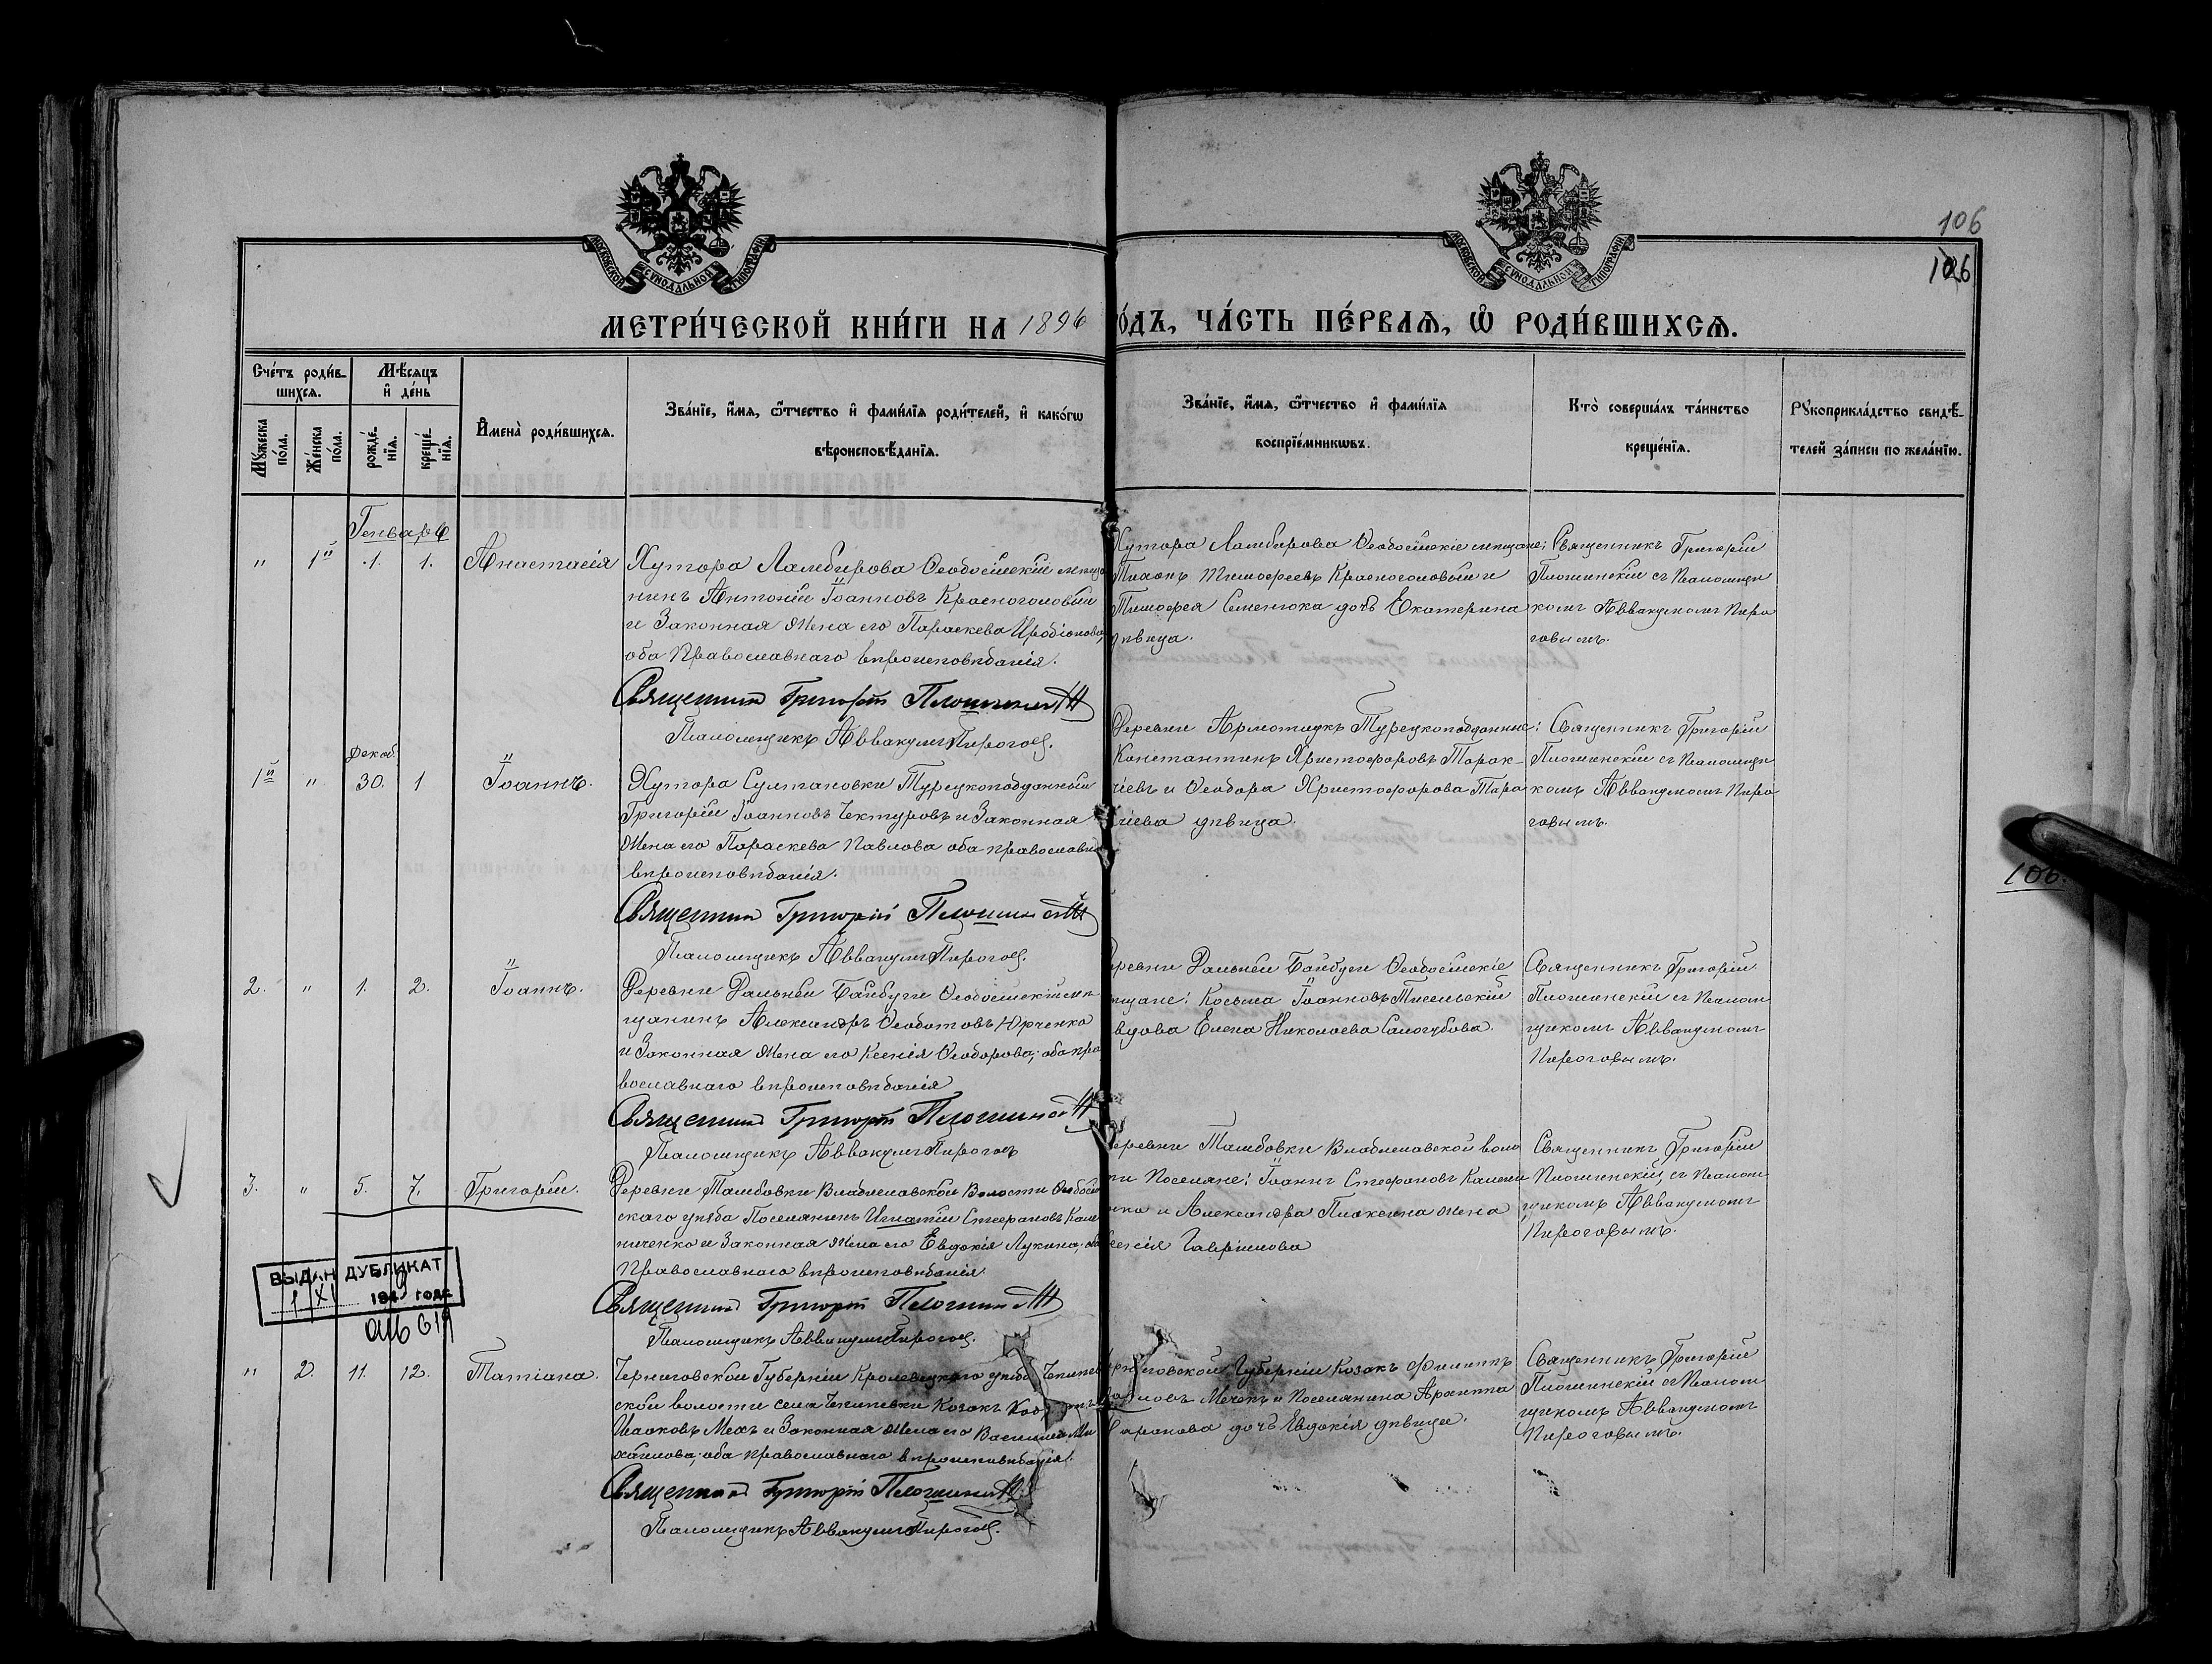 106
126
МОСКОВСКОЙ СѴНОДАЛЬНОЙ ТИПОГРАФІИ
МОСКОВСКОЙ СѴНОДАЛЬНОЙ ТИПОГРАФІИ
МЕТРИ́ЧЕСКОЙ КНИ́ГИ НА 1896
ÓДЪ, ЧА́СТЬ ПЕ́РВАЯ, Ѡ҆ РОДИ́ВШИХСЯ.
Сче́тъ роди́в-
шихся.
Мѣ́сяцъ
и҆ де́нь
Мꙋ́жеска
по́ла.
Же́нска
по́ла.
рожде́-
нїя.
креще́-
нїя.
И҆мена̀ роди́вшихся.
Зва́нїе, и҆́мя, ѻ҆́тчество и҆ фами́лїя роди́телей, и҆ како́гѡ
вѣроисповѣ́данїя.
Зва́нїе, и҆́мя, ѻ҆́тчество и҆ фами́лїя
воспрїе́мникѡвъ.
Кто̀ соверша́лъ та́инство
креще́нїя.
Рꙋкоприкла́дство свидѣ́-
телей за́писи по жела́нїю.
Генваря
" 1й 1. 1. Анастасія
Хутора Ламбирова Ѳеодосійскій мѣща
нинъ Антоній Іоанновъ Красноголовый
и Законная Жена его Параскева Иродіонова,
оба Православнаго вѣроисповѣданія.
Священникъ Григорій Плошинскій
Псаломщикъ Аввакумъ Пироговъ.
Хутора Ламбирова Ѳеодосійскіе мѣщане:
Тихонъ Тимофеевъ Красноголовый и
Тимофея Семенюка дочь Екатерина
дѣвица.
Священникъ Григорій
Плошинскій съ Псаломщи
комъ Аввакумомъ Пиро
говымъ.
Декаб.
1й " 30. 1 Іоаннъ.
Хутора Султановки Турецкоподданный
Григорій Іоанновъ Чектуровъ и Законная
Жена его Параскева Павлова оба православн
вѣроисповѣданія.
Священникъ Григорій Плошинскій
Псаломщикъ Аввакумъ Пироговъ.
Деревни Турецкоподданные:
Константинъ Христофоровъ Тарак-
чіевъ и Ѳеодора Христофорова Тара
чіева дѣвица.
Священникъ Григорій
Плошинскій съ Псаломщи
комъ Аввакумомъ Пиро
говымъ.
106.
2. " 1. 2. Іоаннъ.
Деревни Дальней Байбуги Ѳеодосійскій мѣ
щанинъ Александръ Ѳеодотовъ Юрченко
и Законная Жена его Ксенія Ѳеодорова; оба пра
вославнаго вѣроисповѣданія
Священникъ Григорій Плошинскій
Псаломщикъ Аввакумъ Пироговъ
еревни Дальней Байбуги Ѳеодосійскіе
мщане: Косьма Іоанновъ Тисельскій
вдова Елена Николаева Самогубова.
Священникъ Григорій
Плошинскій съ Псалом
щикомъ Аввакумомъ
Пироговымъ.
3. " 5. 7. Григорій.
Деревни Тамбовки Владиславской Волости Ѳеодосій
скаго уѣзда Поселянинъ Игнатій Стефановъ Кале
ниченко и Законная Жена его Евдокія Лукина; оба
Православнаго вѣроисповѣданія.
Священникъ Григорій Плошинскій
Псаломщикъ Аввакумъ Пироговъ.
еревни Тамбовки Владиславской воло
ти Поселяне: Іоаннъ Стефановъ Калени
нко и Александра Пижевна жена
Гавріилова
Священникъ Григорій
Плошинскій, съ Псалом
щикомъ Аввакумомъ
Пироговымъ.
ВЫДАН ДУБЛИКАТ
1 XI 1949 года
" 2. 11. 12. Татіана.
Черниговской Губерніи Кролевецкаго уѣзда
ской волости села Козакъ
Исаковъ Мехъ и Законная Жена его Василиса Ми
хаилова; оба православнаго вѣроисповѣданія.
Священникъ Григорій Плошинскій
Псаломщикъ Аввакумъ Пироговъ.
говской Губерніи Козакъ Филиппъ
Мехенъ и Поселянина Архиппа
Сафонова дочь Евдокія дѣвица.
Священникъ Григорій
Плошинскій съ Псалом
щикомъ Аввакумомъ
Пироговымъ.